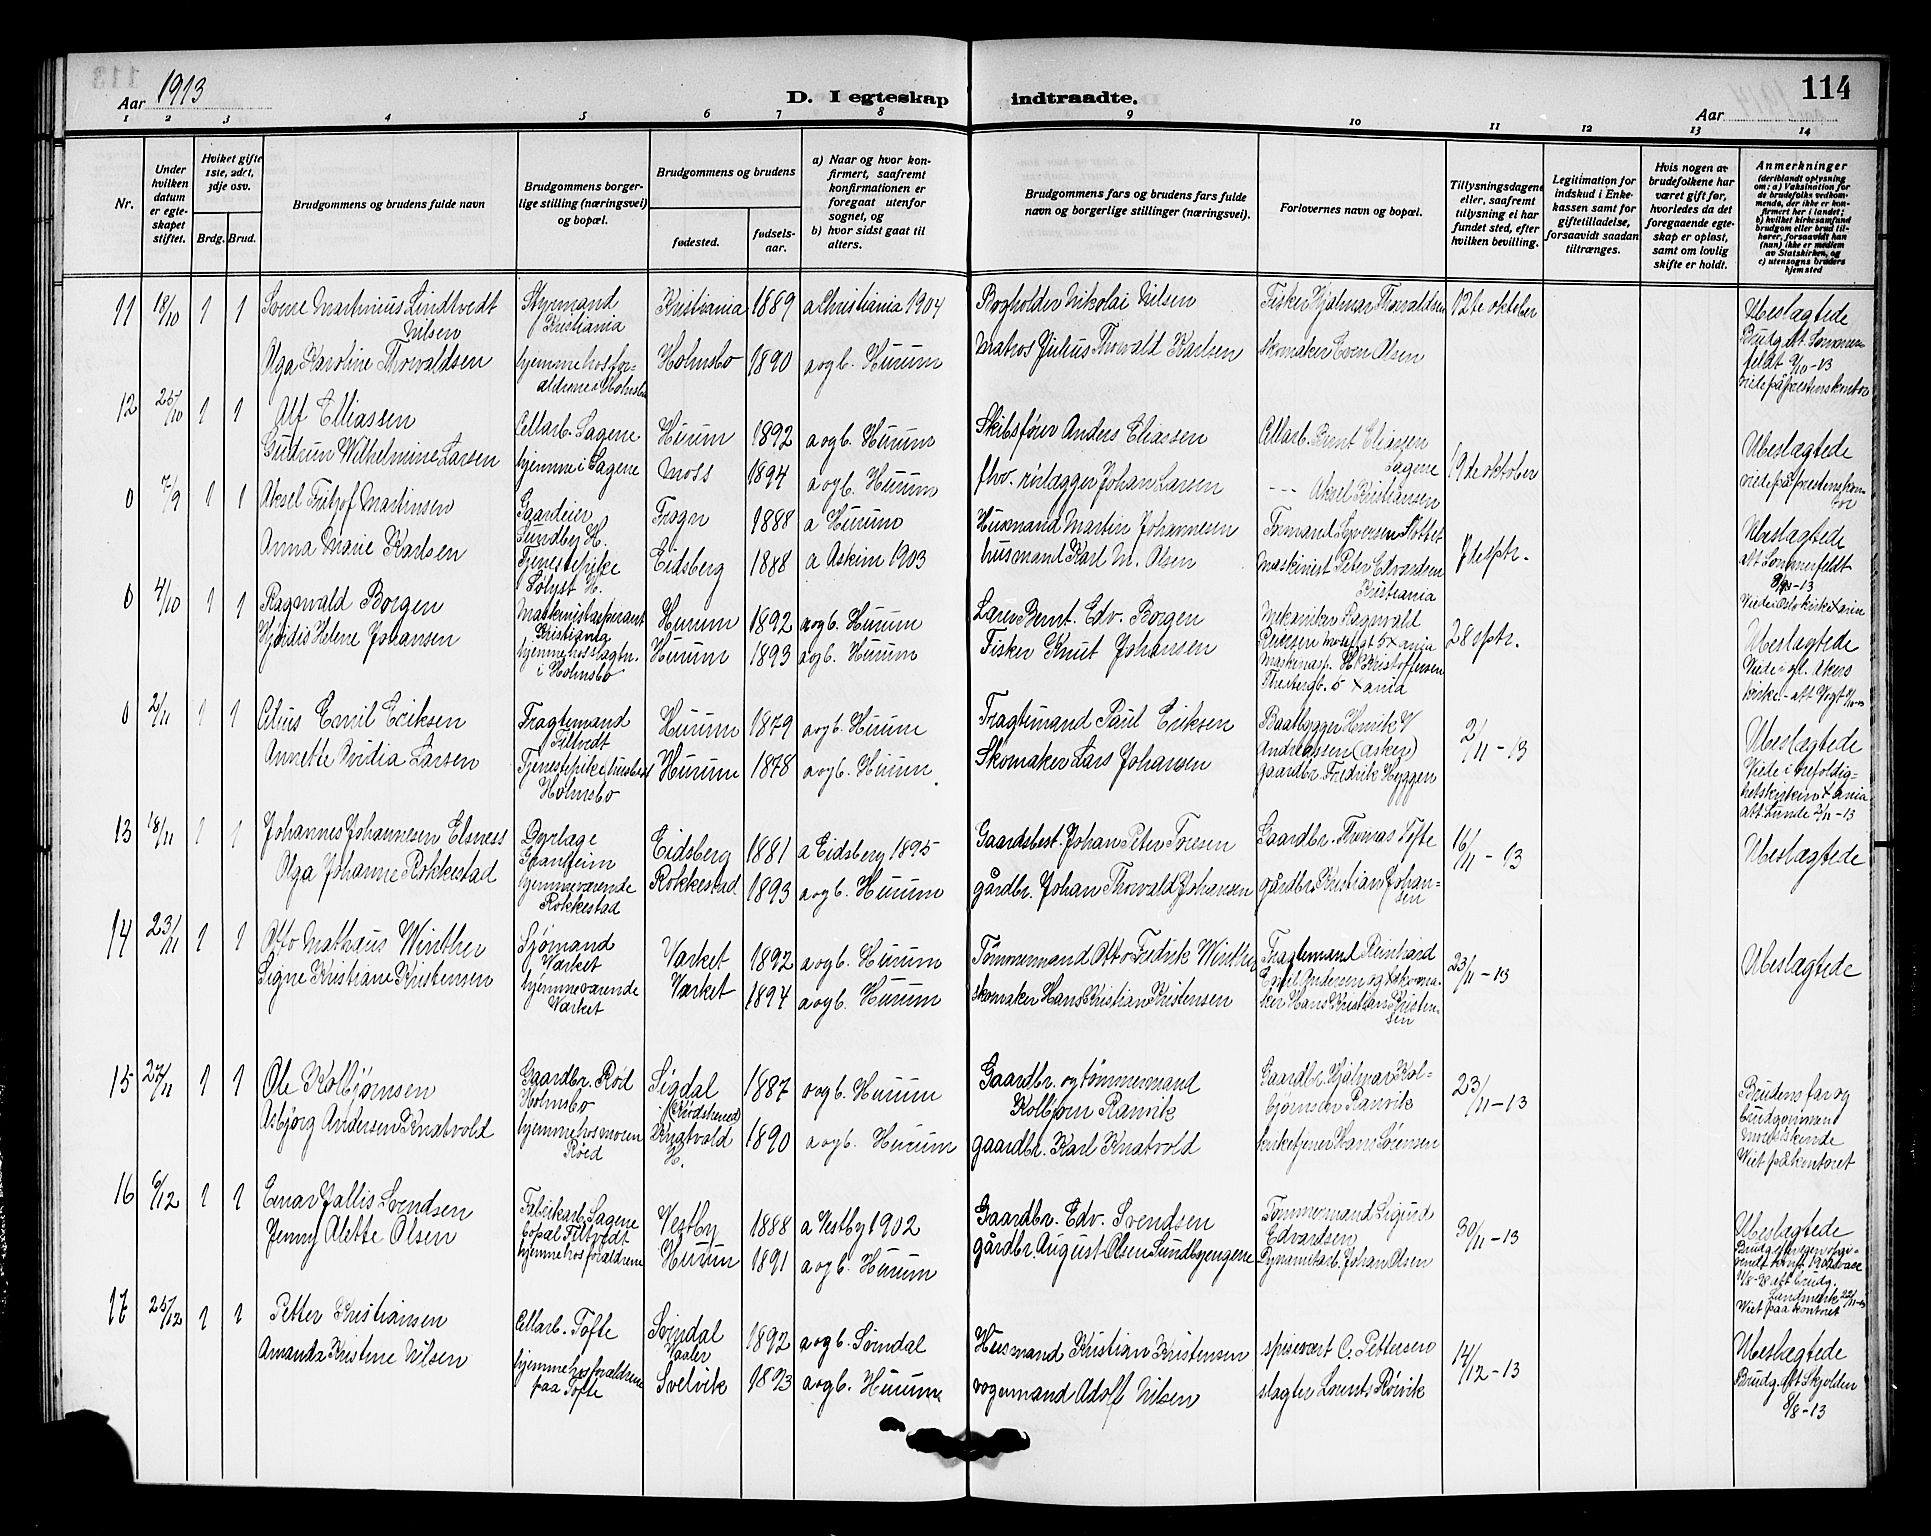 Aar 1913
D. I egteskap indtraadte.
Aar
114
1 2 3 4 5 6 7 8 9 10 11 12 13 14
Nr.
Under hvilken datum er egteskapet stiftet.
Hvilket gifte 1ste, 2det, 3dje osv.
Brdg. Brud.
Brudgommens og brudens fulde navn
Brudgommens borgerlige stilling (næringsvei) og bopæl.
Brudgommens og brudens
fødested.
fødselsaar.
a) Naar og hvor konfirmert, saafremt konfirmationen er foregaat utenfor sognet, og
b) hvor sidst gaat til alters.
Brudgommens fars og brudens fars fulde navn og borgerlige stillinger (næringsvei).
Forlovernes navn og bopæl.
Tillysningsdagene eller, saafremt tillysning ei har fundet sted, efter hvilken bevilling.
Legitimation for indskud i Enkekassen samt for giftetilladelse, forsaavidt saadan tiltrænges.
Hvis nogen av brudefolkene har været gift før, hvorledes da det foregaaende egteskap er opløst, samt om lovlig skifte er holdt.
Anmerkninger
(deriblandt oplysning om: a) Vaksination for de brudefolks vedkommende, der ikke er konfirmert her i landet; b) hvilket kirkesamfund brudgom eller brud tilhører, forsaavidt han (hun) ikke er medlem av Statskirken, og c) utensogns bruders hjemsted
11 18/10 1 1 Martinius Lindtvedt Nilsen Styrmand Kristiania Kristiania 1889 a Christiania 1904 Bogholder Nikolai Nilsen Fisker Hjalmar Thorvaldsen 12te oktober Ubeslægtede
Olga Karoline Thorvaldsen hjemme hos forældrene i Holmsbo Holmsbo 1890 a og b. Hurum Matros Julius Thorvald Karlsen skomaker Even Olsen
viet på prestens kontor
12 25/10 1 1 Alf Elliassen Cellarb. Sagene Hurum 1892 a og b. Hurum Skibsfører Anders Eliassen Cellarb. Bernt Eliassen Sagene 19de oktober Ubeslægtede
Gudrun Wilhelmine Larsen hjemme i Sagene Moss 1894 a og b. Hurum fhv. rørlægger Johan Larsen --- Aksel Kristiansen viet på prestens kontor
0 7/9 1 1 Aksel Fritjof Martinsen Gaardeier Sundby H. Frogn 1888 a Hurum Husmand Martin Johannesen Formand Syversen Slottet 7de sptr. Ubeslægtede
Anna Marie Karlsen Tjenestepike Solyst H. Eidsberg 1888 a Askim 1903 husmand Karl M. Olsen Maskinist Peter Edvardsen Kristiania att Sommerfeldt
0 4/10 1 1 Ragnvald Borgen Maskinistaspirant Kristiania Hurum 1892 a og b. Hurum Lærer Bernt. Edv. Borgen Mekaniker Ragnvald 28 sptr. Ubeslægtede
Hjørdis Helene Johansen hjemme hos slægtn. i Holmsbo Hurum 1893 a og b. Hurum Fisker Knut Johansen Maskinast. Kristoffersen Viede i gl. Akers kirke - att Vogt
0 2/11 1 1 Emil Eriksen Fragtemand Filtvedt Hurum 1879 a og b. Hurum Fragtemand Paul Eriksen Baatbygger Henrik Andreassen (Asker) 2/11-13 Ubeslægtede
Annette Ovidia Larsen Tjenestepike Holmsbo Hurum 1878 a og b. Hurum. Skomaker Lars Johansen gaardbr. Fredrik Hyggen Viede i trefoldighetskirken Xania att Lunde 2/11-13
13 18/11 1 1 Johannes Johannesen Elsness Dyrlæge Granheim Eidsberg 1881 a Eidsberg 1895 Gaardsbest. Johan Peter Toresen Gaardbr. Thomas Tofte 16/11-13 Ubeslægtede
Olga Johanne Rokkestad hjemmeværende Rokkestad Rokkestad 1893 a og b. Hurum gårdbr. Johan Thorvald Johansen gårdbr. Kristian Johansen
14 23/11 1 1 Otto Mathæus Winther Sjømand Værket Værket 1892 a og b. Hurum Tømmermand Otto Fredrik Winther Fragtemand Reinhard 23/11-13 Ubeslægtede
Signe Kristiane Kristensen hjemmeværende Værket Værket 1894 a og b. Hurum skomaker Hans Kristian Kristensen Andersen og skomaker Hans Kristian Kristensen
15 27/11 1 1 Ole Kolbjørnsen Gaardbr. Rød Holmsbo Sigdal 1887 a og b. Hurum Gaardbr. og tømmermand Kolbjørn Ranvik Gaardbr. Hjalmar Kolbjørnsen Ranvik 23/11-13 Brudens far og brudgommen
Asbjørg Andersen Knatvold hjemme hos moren Rød Knatvold H. 1890 a og b. Hurum gaardbr. Karl Knatvold kirketjener Hans Sørensen Viet på kontoret
16 6/12 1 1 Einar Jallis Svendsen Fabrikarb. Sagene bopæl Filtvedt Vestby 1888 a Vestby 1902 Gaardbr. Edv. Svendsen Tømmermand Sigurd Edvardsen 30/11-13 Ubeslægtede
Jenny Alette Olsen hjemme hos forældrene Hurum 1891 a og b. Hurum gårdbr. August Olsen Sundbyengene Dynamitarb. Johan Olsen Viet paa kontoret
17 25/12 1 1 Petter Kristiansen Cellarb. Tofte Svindal Vaaler 1892 a og b. Svindal Husmand Kristian Kristensen spisevært C. Pettersen 14/12-13 Ubeslægtede
Amanda Kristine Nilsen hjemme hos forældrene paa Tofte Svelvik 1893 a og b. Hurum vognmand Adolf Nilsen slagter Lorents Røivik Brudg. att Skjolden 6/8-13